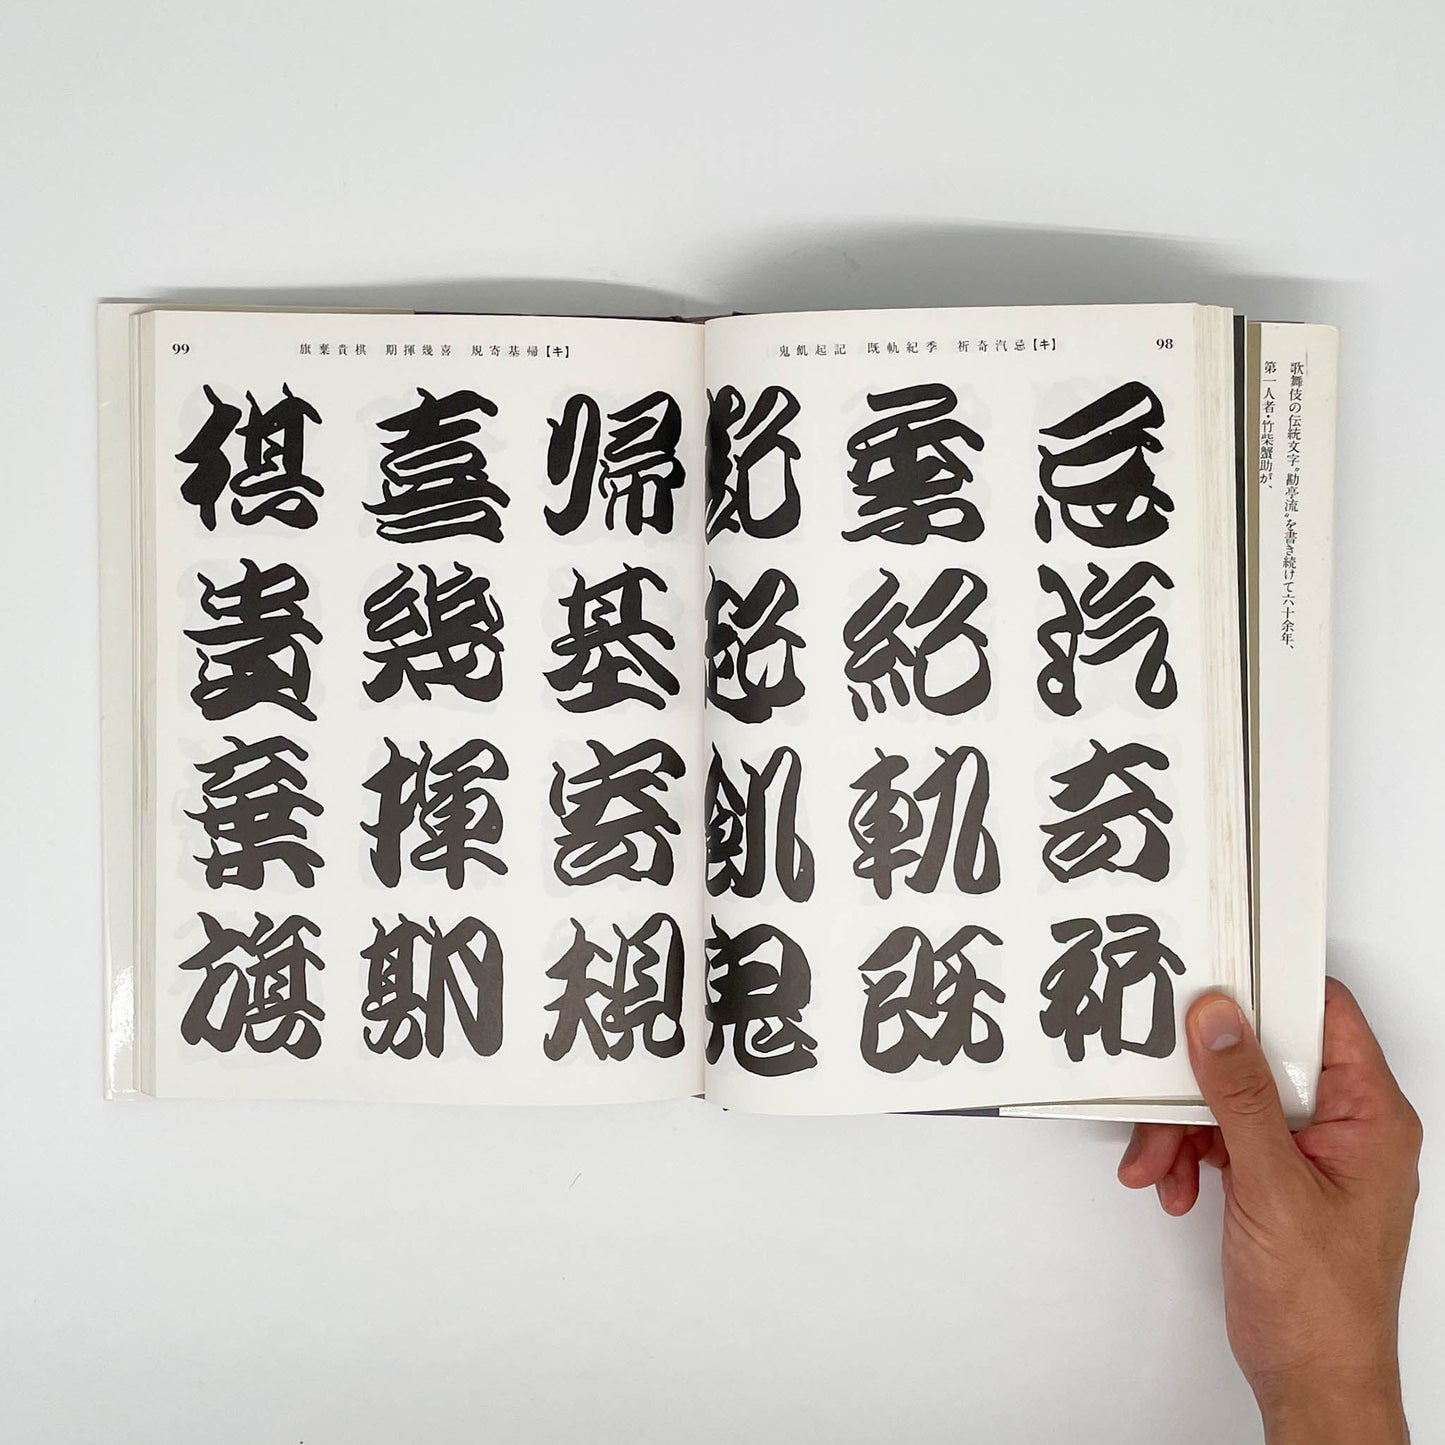 歌舞伎の伝統文字〝勘亭流〟を書き続けて六十余年、
第一人者・竹柴蟹助が、
98
鬼飢起記 既軌紀季 祈奇汽忌【キ】
忌汽奇祈
季紀軌既
記起飢鬼
99
旗棄貴棋 期揮幾喜 規寄基帰【キ】
帰基寄規
喜幾揮期
棋貴棄旗